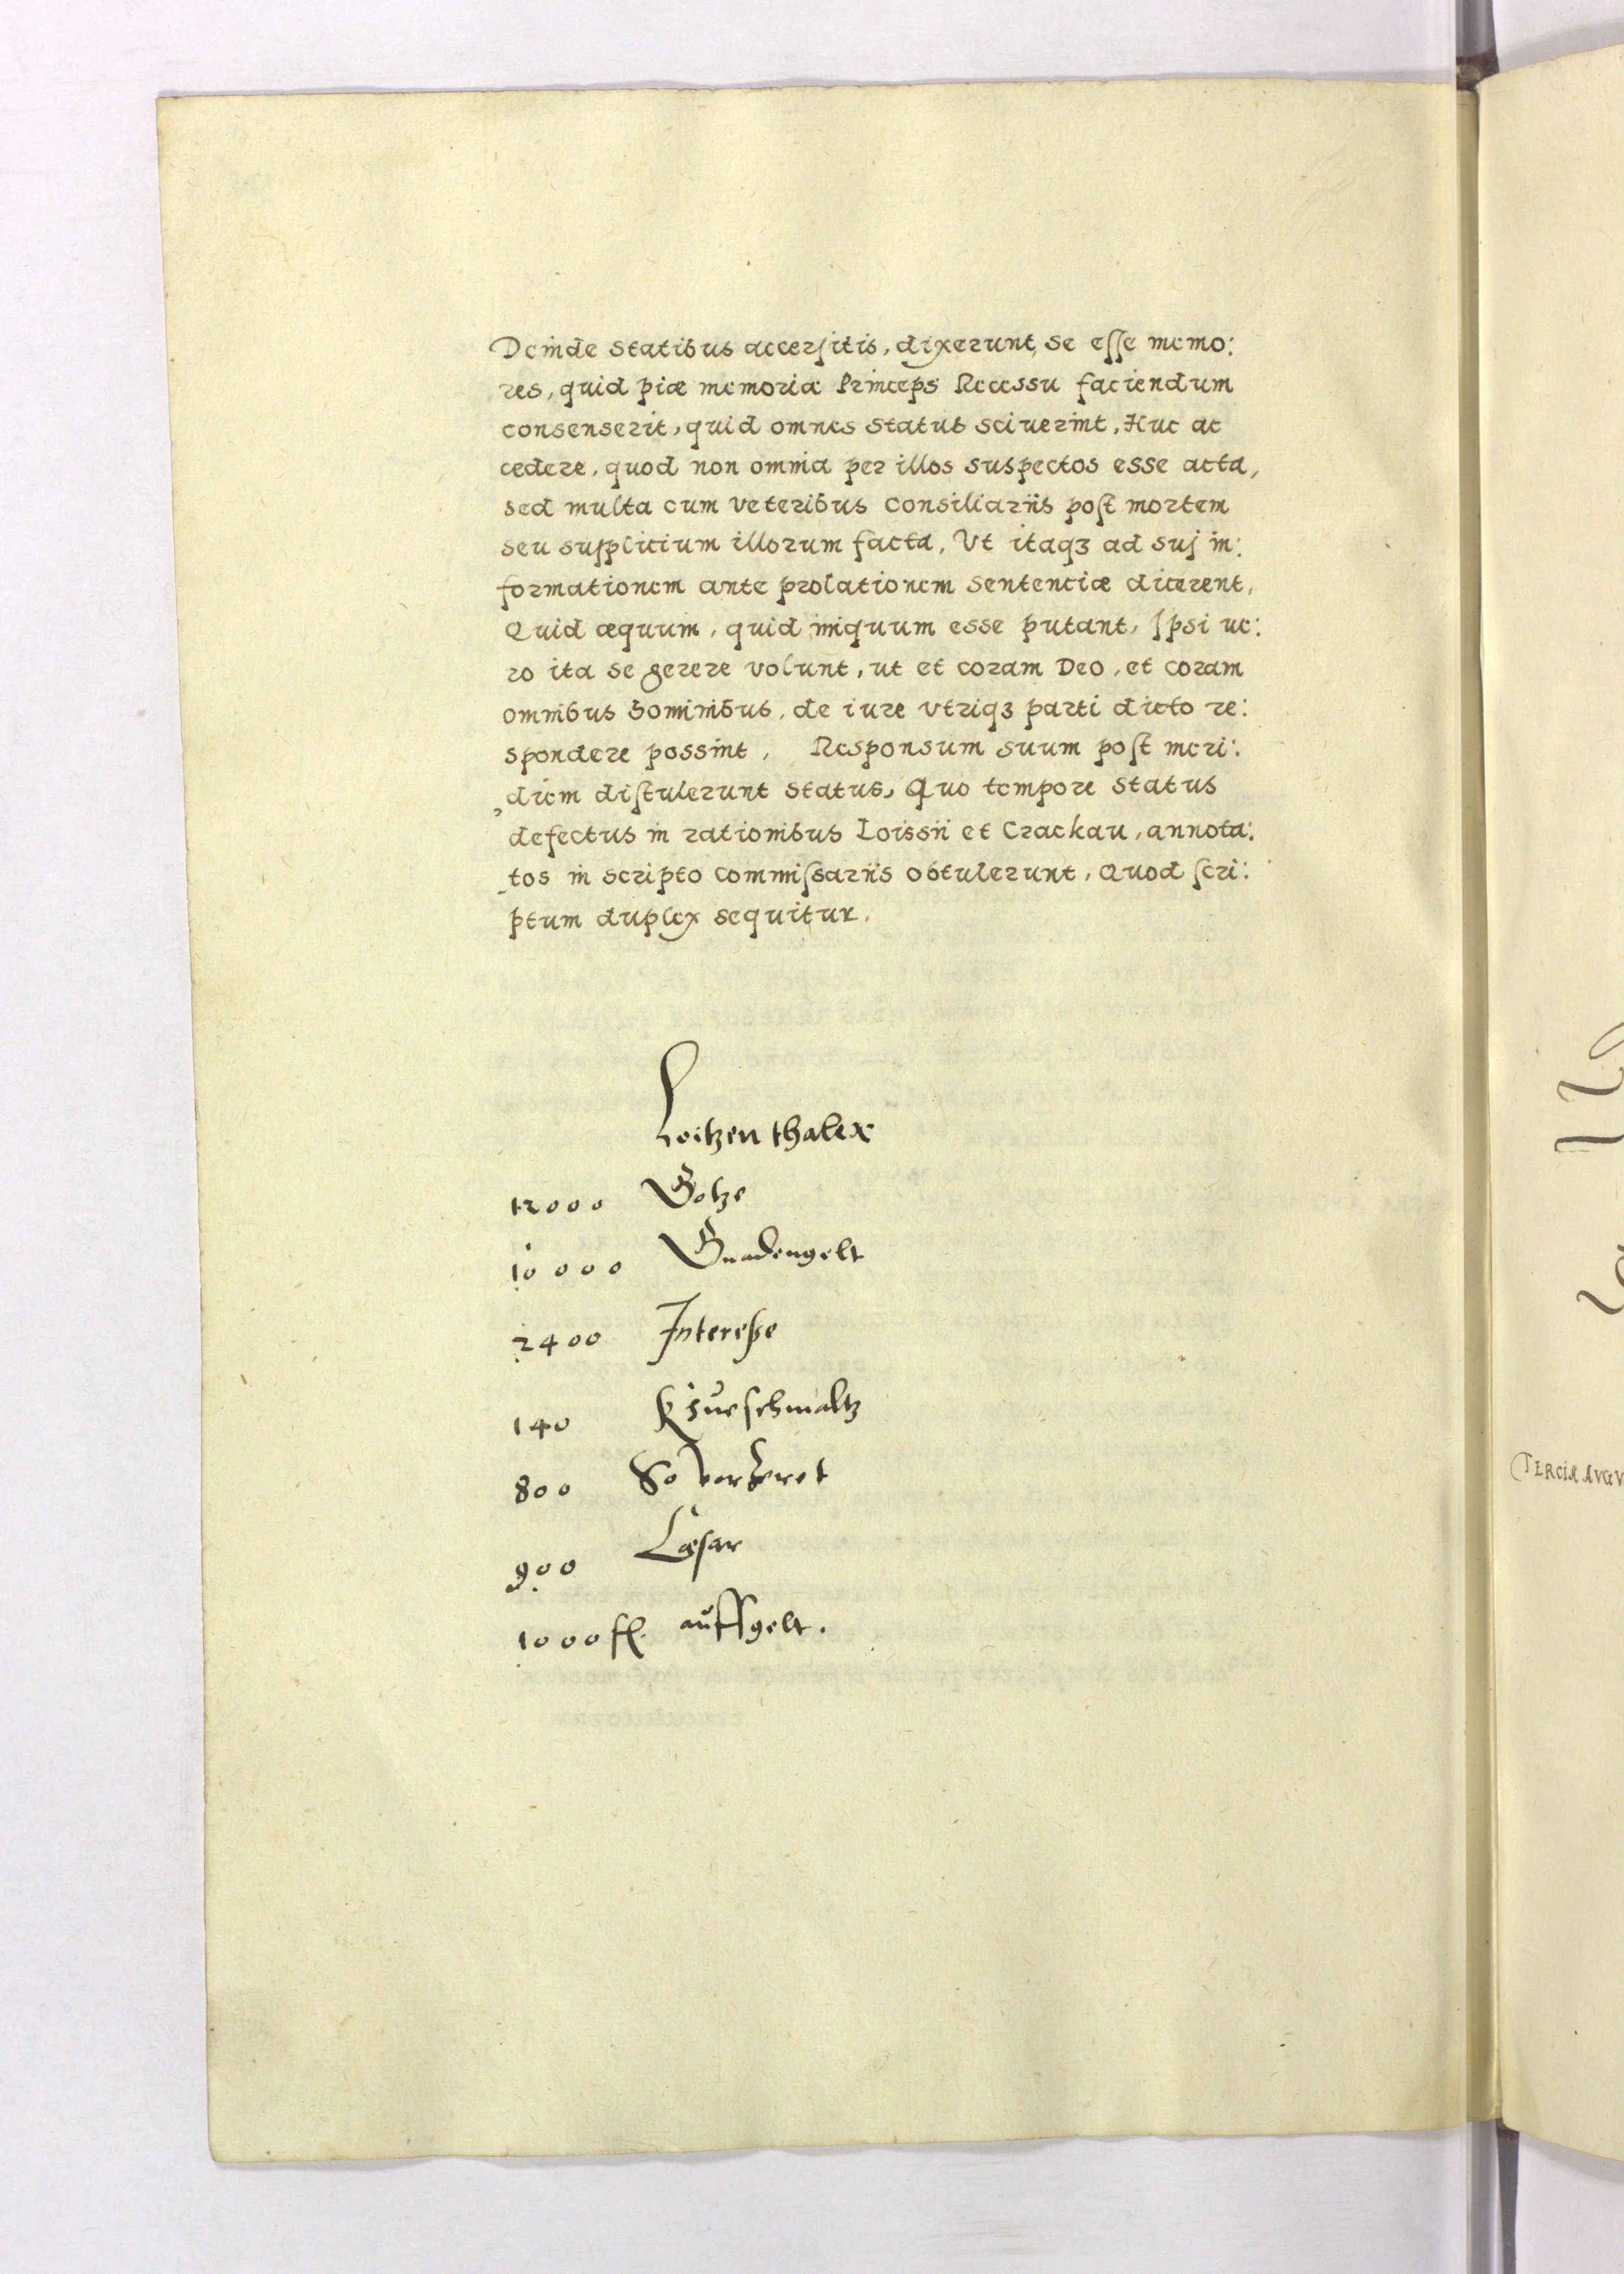 Deinde Statibus accersitis, dixerunt, se esse memo:
res, quid piæ memoriæ Princeps Recessu faciendum
consenserit, quid omnes Status sciuerint, Huc ac
cedere, quod non omnia per illos suspectos esse acta,
sed multa cum veteribus Consiliariis post mortem
seu supplicium illorum facta, Vt itaqȝ ad suj in:
formationem ante prolationem Sentenciæ dicerent,
Quid æquum, quid iniquum esse putant, Ipsi ue:
ro ita se gerere volunt, ut et coram Deo, et coram
omnibus hominibus, de iure vtriqȝ parti dicto re:
spondere possint, Responsum suum post meri:
diem distulerunt Status, Quo tempore Status
defectus in rationibus Loissii et Crackau, annota:
tos in scripto Commissariis obtulerunt, Quod scri:
ptum duplex sequitur.
Loitzen thaler
12000 Gotze
10000 Gnadengelt
2400 Interesse
140 schmaltz
800 So verzeret
900 Cæsar
1000 fl. auffgelt.
TERCIA AVGV